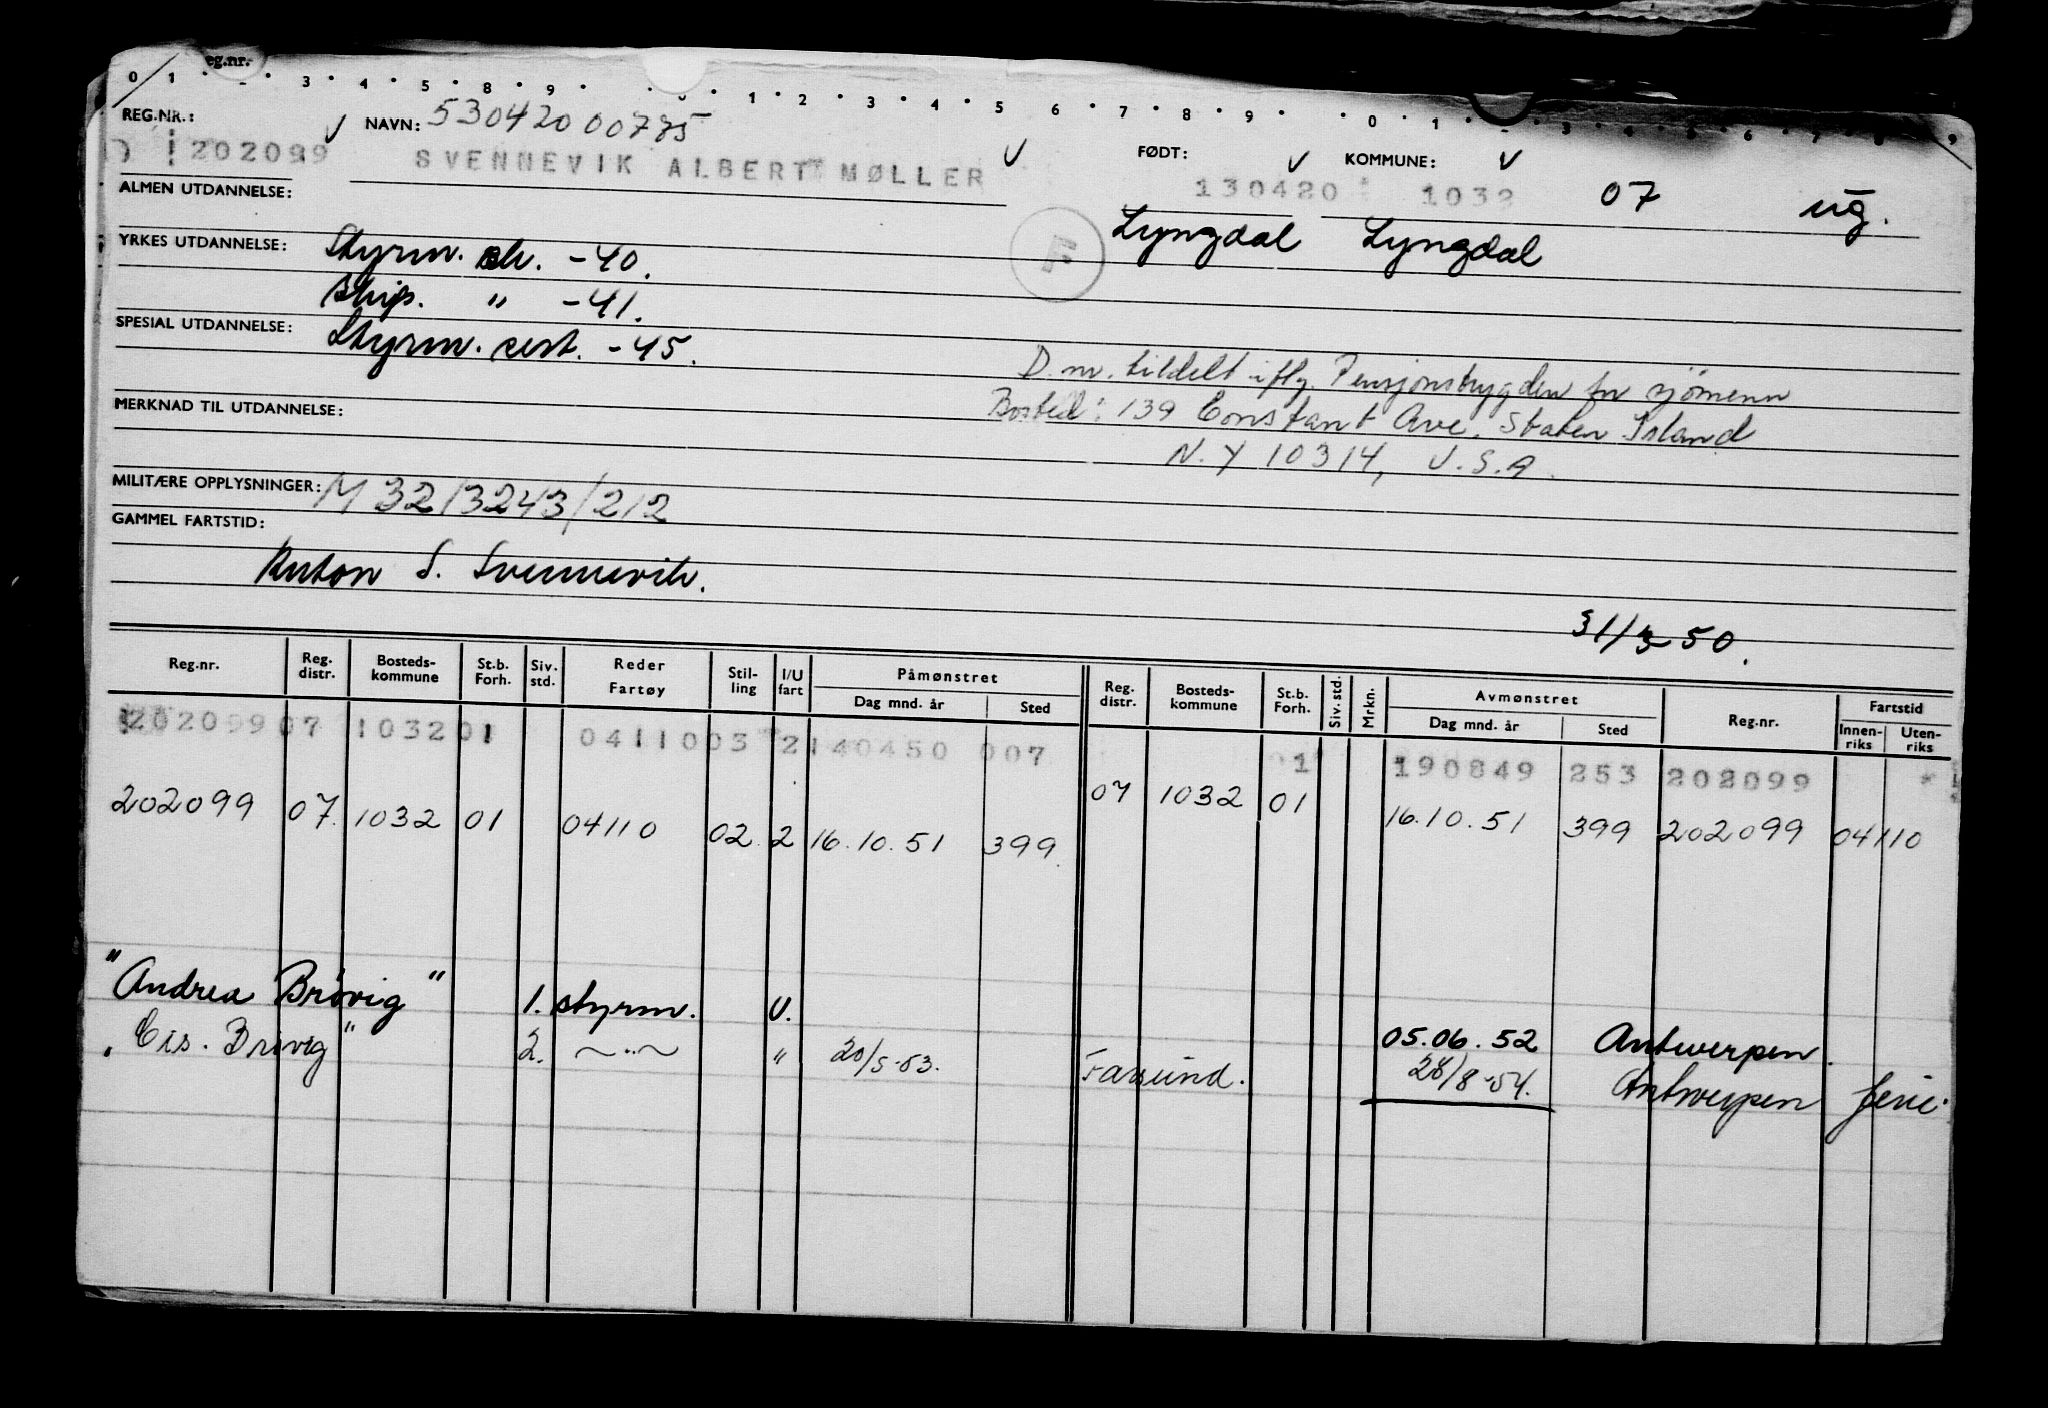 eg.nr.
0 1 · - · 3 · 4 · 5 · 8 · 9 · · 0 · 1 · 2 · 3 · 4 · 5 6 · 7 · 8 · 9 · · 0 · 1 · - · 3 · 4 · 5 · 6 · 7 · 8 · 9
REG.NR.: NAVN: 53042000785 FØDT: KOMMUNE:
202099 SVENNEVIK ALBERT MØLLER 130420 1032 07 ug.
ALMEN UTDANNELSE: Lyngdal Lyngdal
F
YRKES UTDANNELSE: Styrm. sk. -40.
Skip. " -41.
SPESIAL UTDANNELSE: Styrm. cert. -45.
D.nr. tildelt iflg. Pensjonstrygden for sjömenn
MERKNAD TIL UTDANNELSE: Bosted: 139 Constant Ave. Staten Island
N.Y 10314, U.S.A.
MILITÆRE OPPLYSNINGER: M 32/3243/212
GAMMEL FARTSTID:
Anton S. Svennevik.
31/3 50.
Reg.nr. Reg. distr. Bosteds-kommune St.b. Forh. Siv. std. Reder Fartøy Stil-ling I/U fart Påmønstret Dag mnd. år Sted Reg. distr. Bosteds-kommune St.b. Forh. Siv. std. Mrkn. Avmønstret Dag mnd. år Sted Reg.nr. Fartstid Innen-riks Uten-riks
202099 07 1032 01 0411003 2 140450 007 1 190849 253 202099
202099 07. 1032 01 04110 02 2 16.10.51 399. 07 1032 01 16.10.51 399 202099 04110
"Andrea Brøvig" 1. styrm. U. 05.06.52 Antwerpen.
"Cis. Brøvig" 2. ~"~ " 20/5-53. Farsund. 28/8-54. Antwerpen ferie.